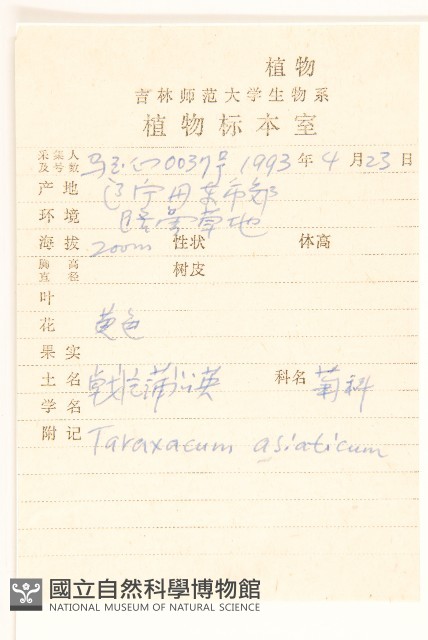 植物
吉林师范大学生物系
植物标本室
采集人及号数 马玉心 0037号 1993年4月23日
产地 辽宁丹东市郊
环境 路旁草地
海拔 200m 性状 体高
胸高直径 树皮
叶
花 黄色
果实
土名 戟片蒲公英 科名 菊科
学名
附记 Taraxacum asiaticum
國立自然科學博物館
NATIONAL MUSEUM OF NATURAL SCIENCE